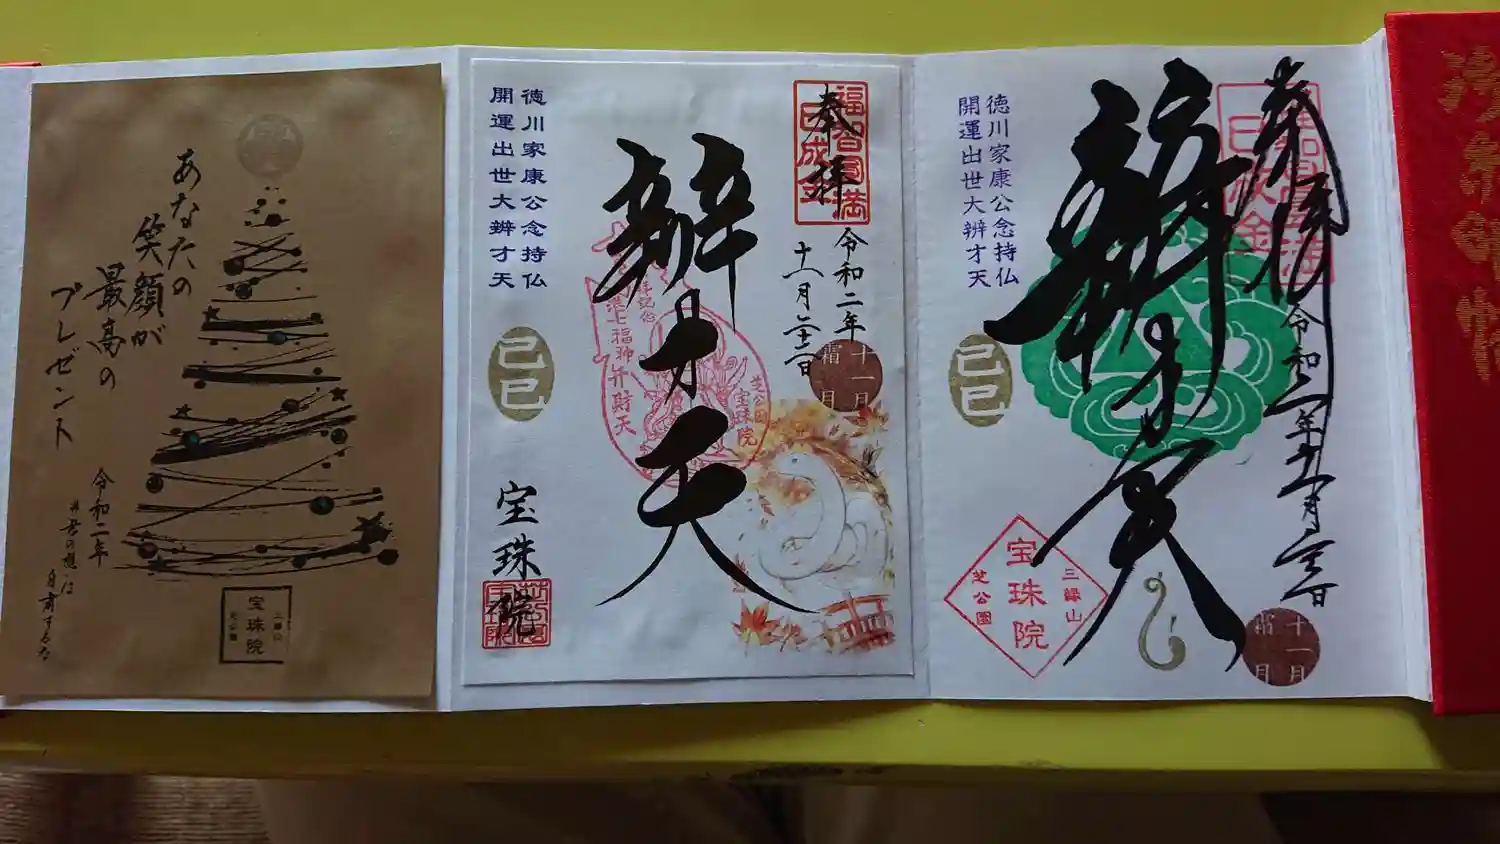 奉拝
令和二年
辨才天
徳川家康公念持仏
開運出世大辨才天
己巳
三縁山
宝珠院
芝公園
十一月
霜月
福智円満
巳成金
奉拝
令和二年
十一月二十二日
辨才天
芝公園
宝珠院
港七福神弁財天
徳川家康公念持仏
開運出世大辨才天
己巳
宝珠院
十一月
霜月
あなたの
笑顔が
最高の
プレゼント
令和二年
三縁山
宝珠院
芝公園